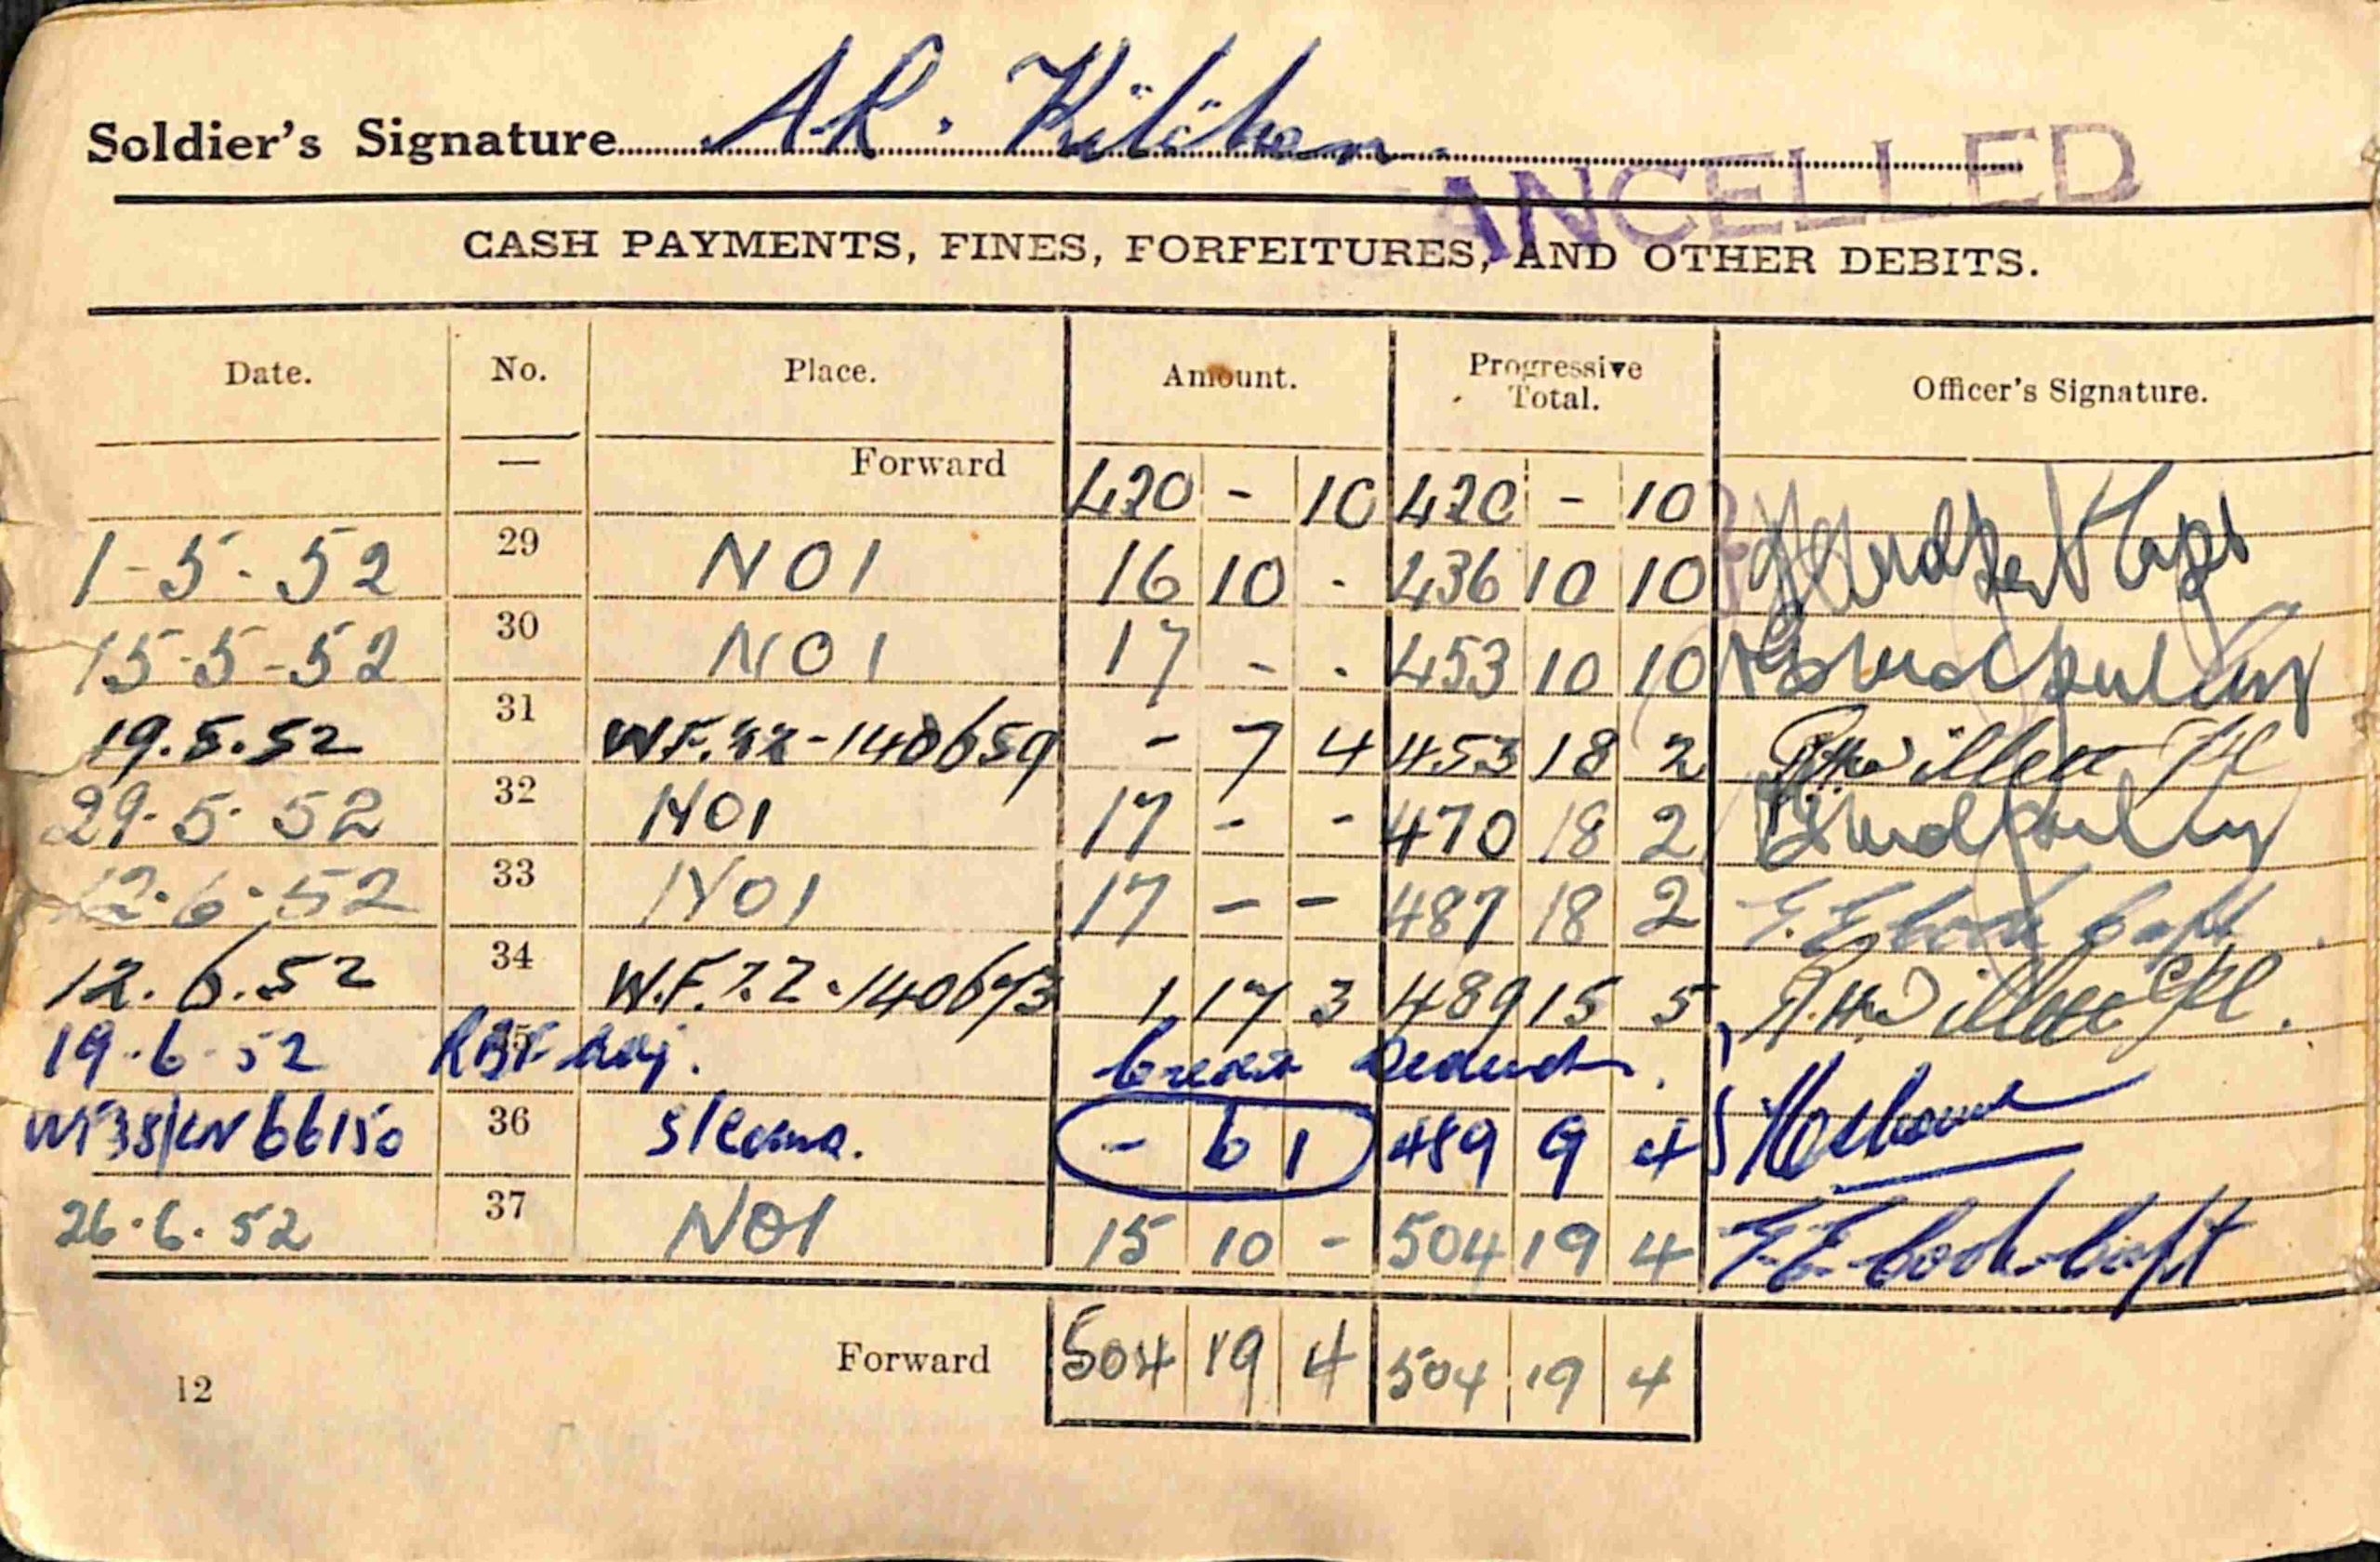 Soldier's Signature A.R.
ANCELLED
CASH PAYMENTS, FINES, FORFEITURES, AND OTHER DEBITS.
Date. No. Place. Amount. Progressive Total. Officer's Signature.
— Forward 420 - 10 420 - 10
1-5-52 29 NO1 16 10 - 436 10 10 Capt
15-5-52 30 NO1 17 - - 453 10 10
19.5.52 31 - 7 4 453 18 2
29.5.52 32 NO1 17 - - 470 18 2
12.6.52 33 NO1 17 - - 487 18 2 E.E. Cook Capt.
12.6.52 34 1 17 3 489 15 5
19.6.52 adj. Credit Deduct.
36 - 6 1 489 9 4
26.6.52 37 NO1 15 10 - 504 19 4 E.E. Cook Capt
Forward 504 19 4 504 19 4
12